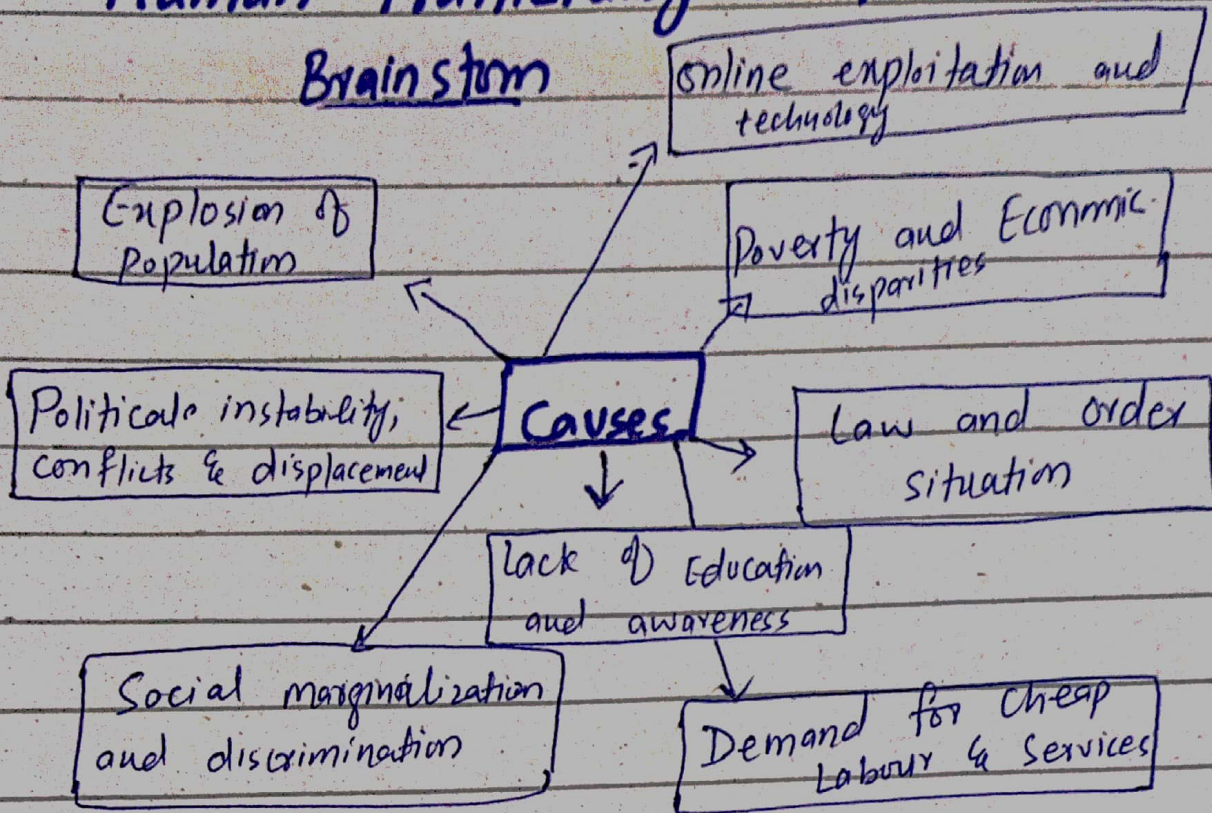 Human
Brainstorm
online exploitation and
technology
Explosion of
Population
Poverty and Economic
disparities
Political instability,
conflicts & displacement
Causes
Law and order
situation
Lack of Education
and awareness
Social marginalization
and discrimination
Demand for Cheap
Labour & Services